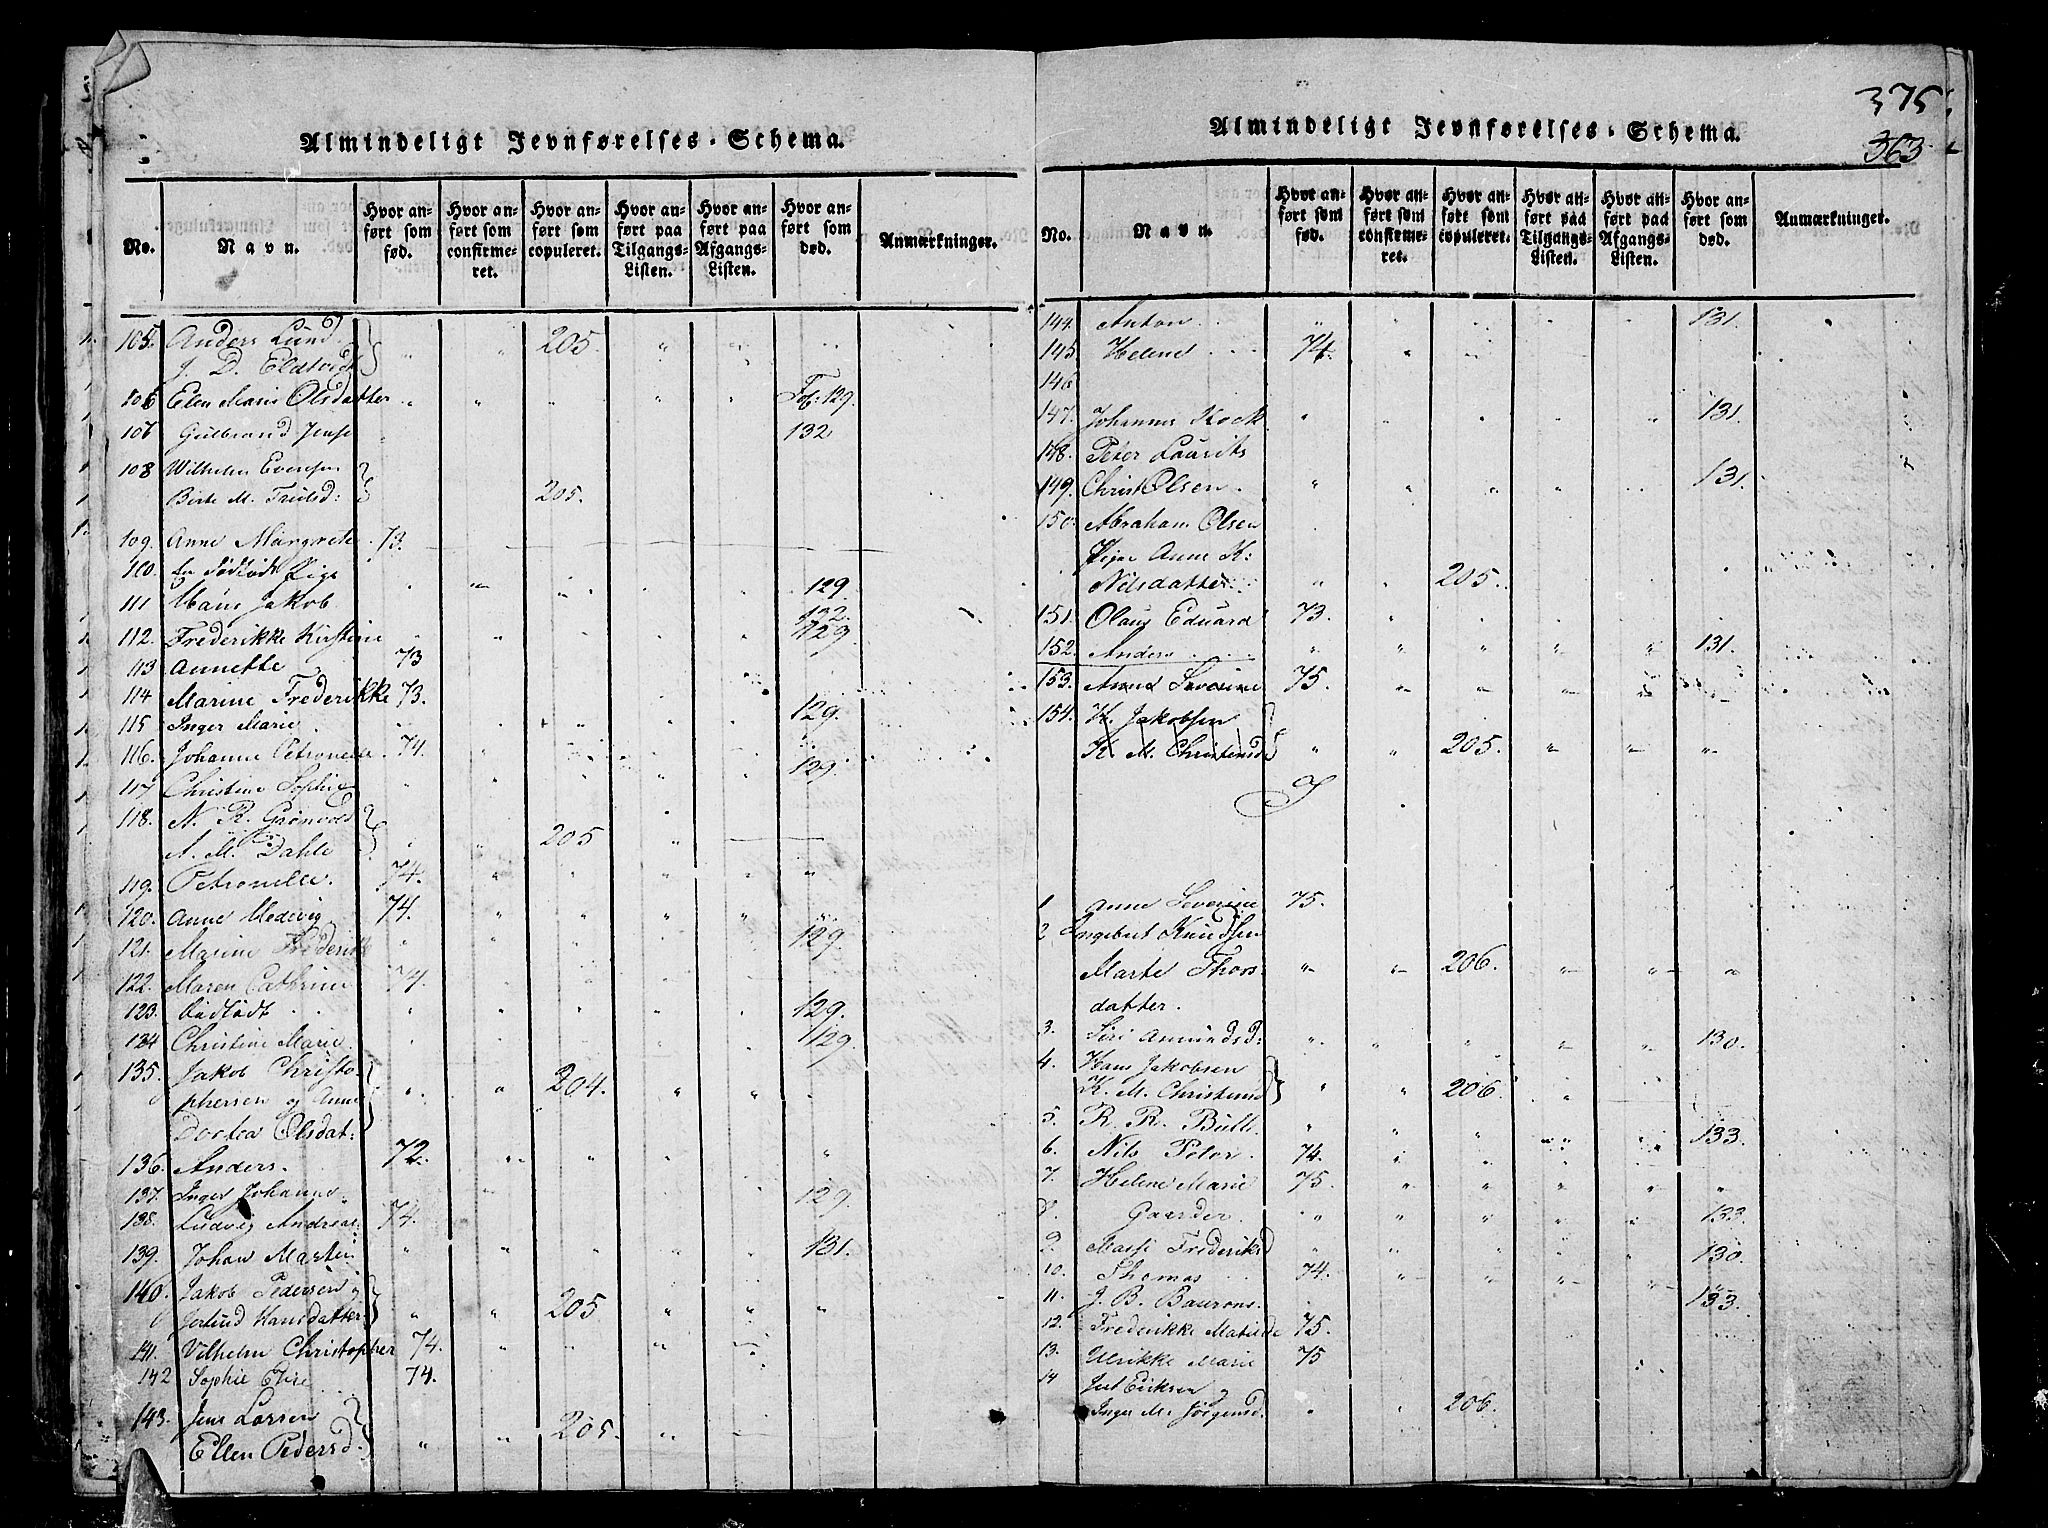 Almindeligt Jevnførelses-Schema.
No.
Navn.
Hvor anført som fød.
Hvor anført som confirmeret.
Hvor anført som copuleret.
Hvor anført paa Tilgangs-Listen.
Hvor anført paa Afgangs-Listen.
Hvor anført som død.
Anmærkninger.
105. Anders Lund
J. D. 205.
106 Elen Marie Olsdatter Fol. 129.
107 Gulbrand Jense 132
108 Wilhelm Evensen
Birte M. Trulsd: 205.
109. Anne Margrete 73.
110. En dødfødt Pige 129
111 Hans Jakob 132.
112. Frederikke Kirstine 129.
113 Annette 73
114 Marine Frederikke 73.
115 Inger Marie 129.
116. Johanne Petronelle 74.
117 Christine Sophie 129
118. N. R. Grønvold
A. M. Dahle 205
119. Petronelle. 74.
120. Anne Hedevig 74.
121. Marine Frederikk 129
122. Maren Cathrine 74.
123. dødfødt 129.
134 Christine Marie 129.
135. Jakob Christo-
phersen og Anne 204.
Dortea Olsdat:
136. Anders. 72.
137. Inger Johanne 129.
138. Ludvig Andreas. 74.
139. Johan Martin 131.
140. Jakob Pedersen og
Jertrud Hansdatter 205
141. Vilhelm Christopher 74.
142 Sophie 74.
143. Jens Larsen
Ellen Pedersd. 205.
375
363
Almindeligt Jevnførelses-Schema.
No.
Navn.
Hvor anført som fød.
Hvor anført som confirmeret.
Hvor anført som copuleret.
Hvor anført paa Tilgangs-Listen.
Hvor anført paa Afgangs-Listen.
Hvor anført som død.
Anmærkninger.
144. Anton 131.
145 Helene 74.
146
147. Johannes Kock 131.
148. Peter Laurits
149. Christ Olsen. 131.
150. Abraham Olsen
Pige Anne K:
Nilsdatter 205.
151. Olaus Eduard 73.
152. Anders 131.
153. Anne Severine 75.
154. H. Jakobsen
K. M. Christensd 205.
1 Anne Severine 75.
2 Ingebret Knudsen
Marte Thors- 206.
datter.
3. Siri Amundsd: 130.
4. Hans Jakobsen
K. M. Christensd 206.
5. R. R. Bull. 133.
6. Nils Peter. 74.
7. Helene Marie 75.
8. Gaarder. 133.
9. Massi Frederiksd 130.
10. Thomas 74.
11. J. B. Baurons. 133.
12. Frederikke Matilde 75.
13. Ulrikke Marie 75
14 Jul Eriksen og
Inger M. Jörgensd. 206.